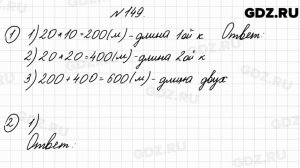 GDZ.RU
№149.
① 1) 20*10=200(м)-длина 1ой к Ответ:
2) 20*20=400(м)-длина 2ой к
3) 200+400=600(м)-длина двух
② 1)
Ответ:
GDZ.RU